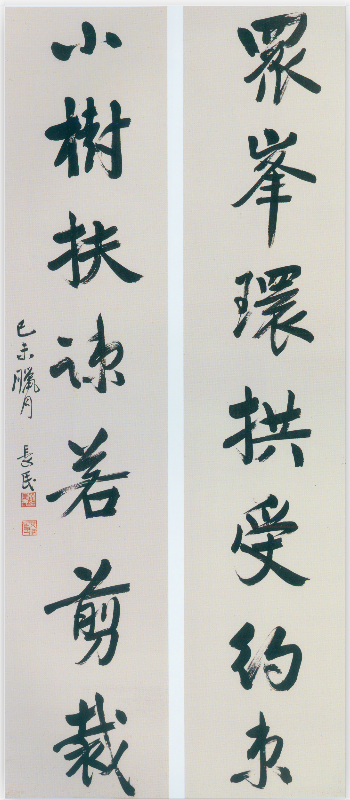 眾峯環拱受約束
小樹扶疎若剪裁
己未臘月 長民